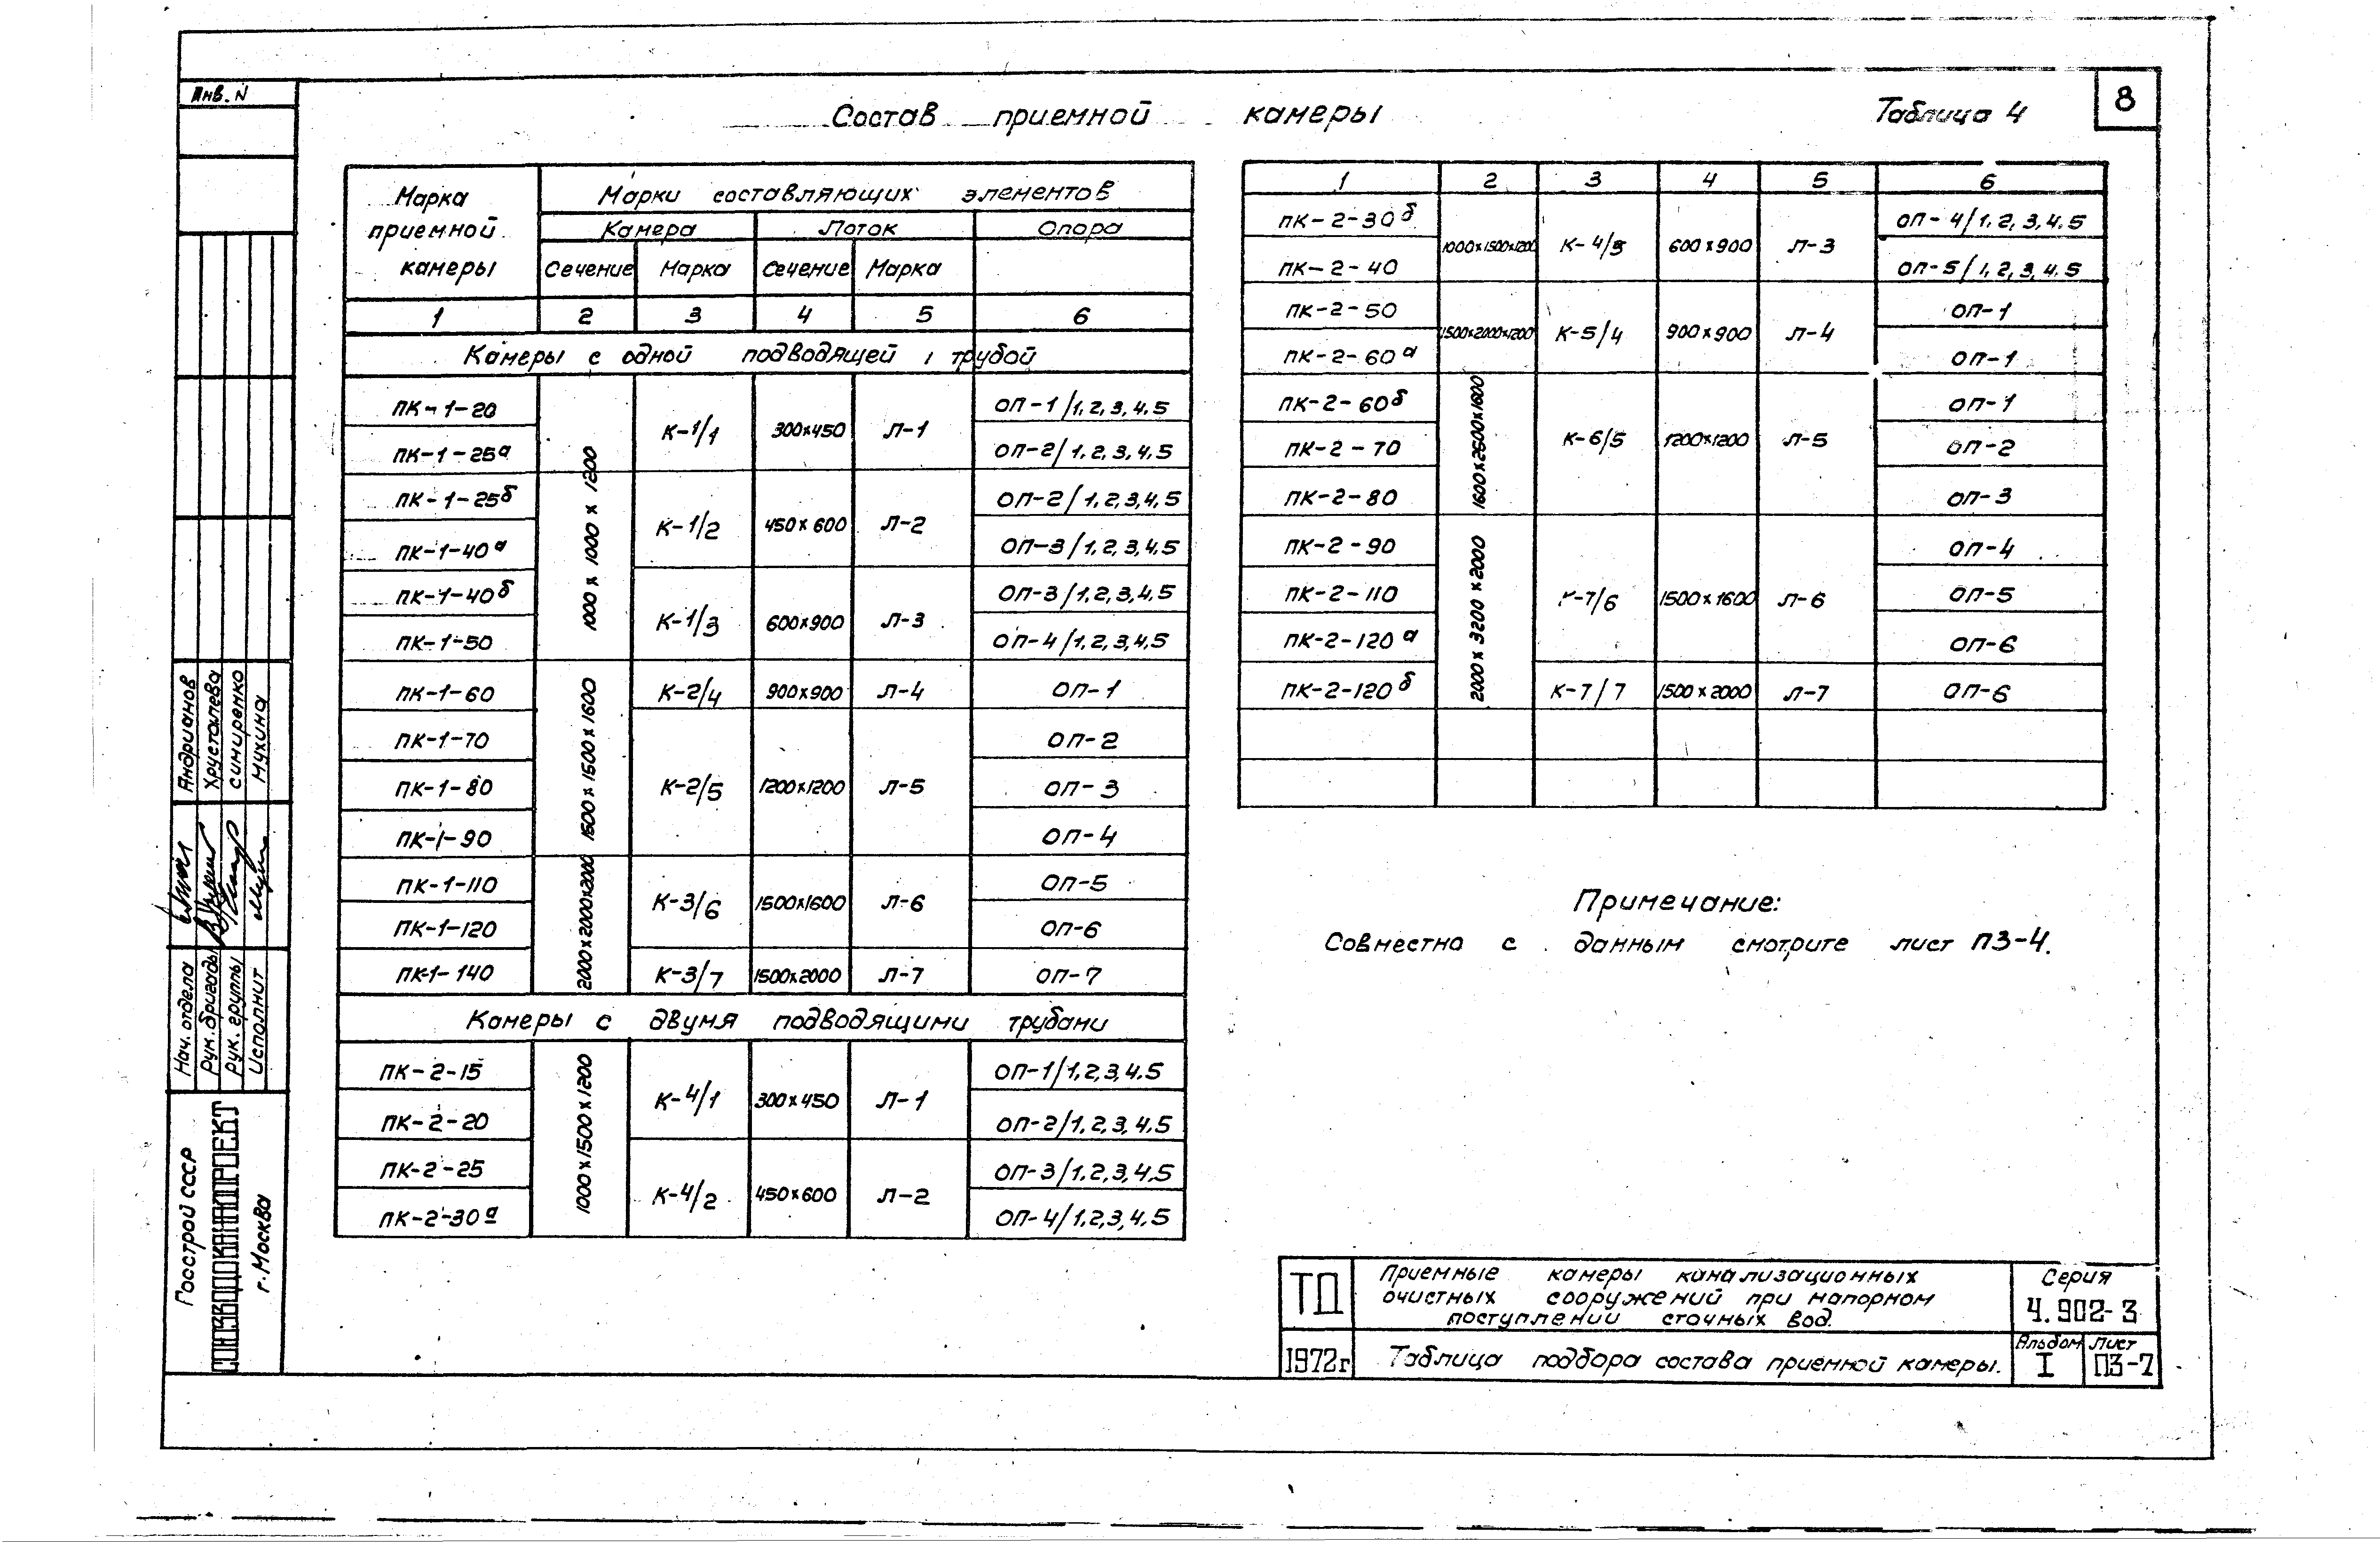 Инв. N
8
Состав приемной камеры
Таблица 4
Марка приемной камеры
Марки составляющих элементов
Камера Лоток Опора
Сечение Марка Сечение Марка
1 2 3 4 5 6
Камеры с одной подводящей трубой
ПК-1-20 1000 х 1000 х 1200 К-1/1 300х450 Л-1 ОП-1/1,2,3,4,5
ПК-1-25а ОП-2/1,2,3,4,5
ПК-1-25б К-1/2 450х600 Л-2 ОП-2/1,2,3,4,5
ПК-1-40а ОП-3/1,2,3,4,5
ПК-1-40б К-1/3 600х900 Л-3 ОП-3/1,2,3,4,5
ПК-1-50 ОП-4/1,2,3,4,5
ПК-1-60 1500 х 1500 х 1600 К-2/4 900х900 Л-4 ОП-1
ПК-1-70 К-2/5 1200х1200 Л-5 ОП-2
ПК-1-80 ОП-3
ПК-1-90 ОП-4
ПК-1-110 2000х2000х2000 К-3/6 1500х1600 Л-6 ОП-5
ПК-1-120 ОП-6
ПК-1-140 К-3/7 1500х2000 Л-7 ОП-7
Камеры с двумя подводящими трубами
ПК-2-15 1000х1500х1200 К-4/1 300х450 Л-1 ОП-1/1,2,3,4,5
ПК-2-20 ОП-2/1,2,3,4,5
ПК-2-25 К-4/2 450х600 Л-2 ОП-3/1,2,3,4,5
ПК-2-30а ОП-4/1,2,3,4,5
1 2 3 4 5 6
ПК-2-30б 1000х1500х1200 К-4/3 600х900 Л-3 ОП-4/1,2,3,4,5
ПК-2-40 ОП-5/1,2,3,4,5
ПК-2-50 1500х2000х1200 К-5/4 900х900 Л-4 ОП-1
ПК-2-60а ОП-1
ПК-2-60б 1600х2500х1600 К-6/5 1200х1200 Л-5 ОП-1
ПК-2-70 ОП-2
ПК-2-80 ОП-3
ПК-2-90 2000 х 3200 х 2000 К-7/6 1500х1600 Л-6 ОП-4
ПК-2-110 ОП-5
ПК-2-120а ОП-6
ПК-2-120б К-7/7 1500х2000 Л-7 ОП-6
Примечание:
Совместно с данным смотрите лист ПЗ-4.
Нач. отдела Андрианов
Рук. бригады Хрусталева
Рук. группы Симиренко
Исполнит Мухина
Госстрой СССР
СОЮЗВОДОКАНАЛПРОЕКТ
г. Москва
ТП
Приемные камеры канализационных
очистных сооружений при напорном
поступлении сточных вод.
Серия
4.902-3
1972г
Таблица подбора состава приемной камеры.
Альбом I
Лист ПЗ-7